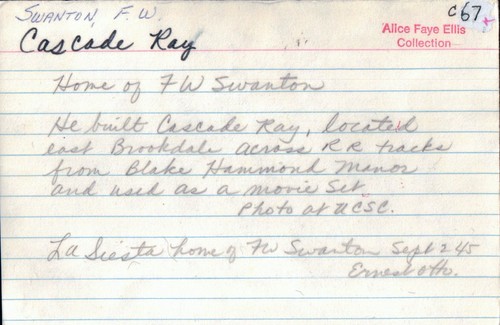 SWANTON, F. W.
C67
Cascade Ray
Alice Faye Ellis
Collection
Home of FW Swanton
He built Cascade Ray, located
east Brookdale across RR tracks
from Blake Hammond Manor
and used as a movie set.
Photo at UCSC.
La Siesta home of FW Swanton Sept 2 45
Ernest Otto.